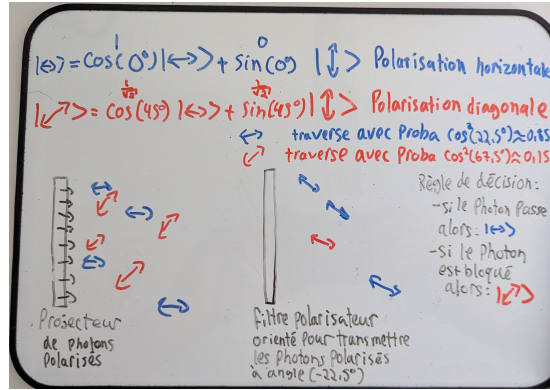 |↔> = cos(0°)|↔> + sin(0°)|↕> Polarisation horizontale
1 0
|⤢> = cos(45°)|↔> + sin(45°)|↕> Polarisation diagonale
1/√2 1/√2
↔ traverse avec Proba cos²(22,5°)≈0,85
⤢ traverse avec Proba cos²(67,5°)≈0,15
Règle de décision:
-si le Photon Passe
alors: |↔>
-si le Photon
est bloqué
alors: |⤢>
Projecteur
de photons
Polarisés
filtre polarisateur
orienté pour transmettre
les Photons Polarisés
à angle (-22,5°)